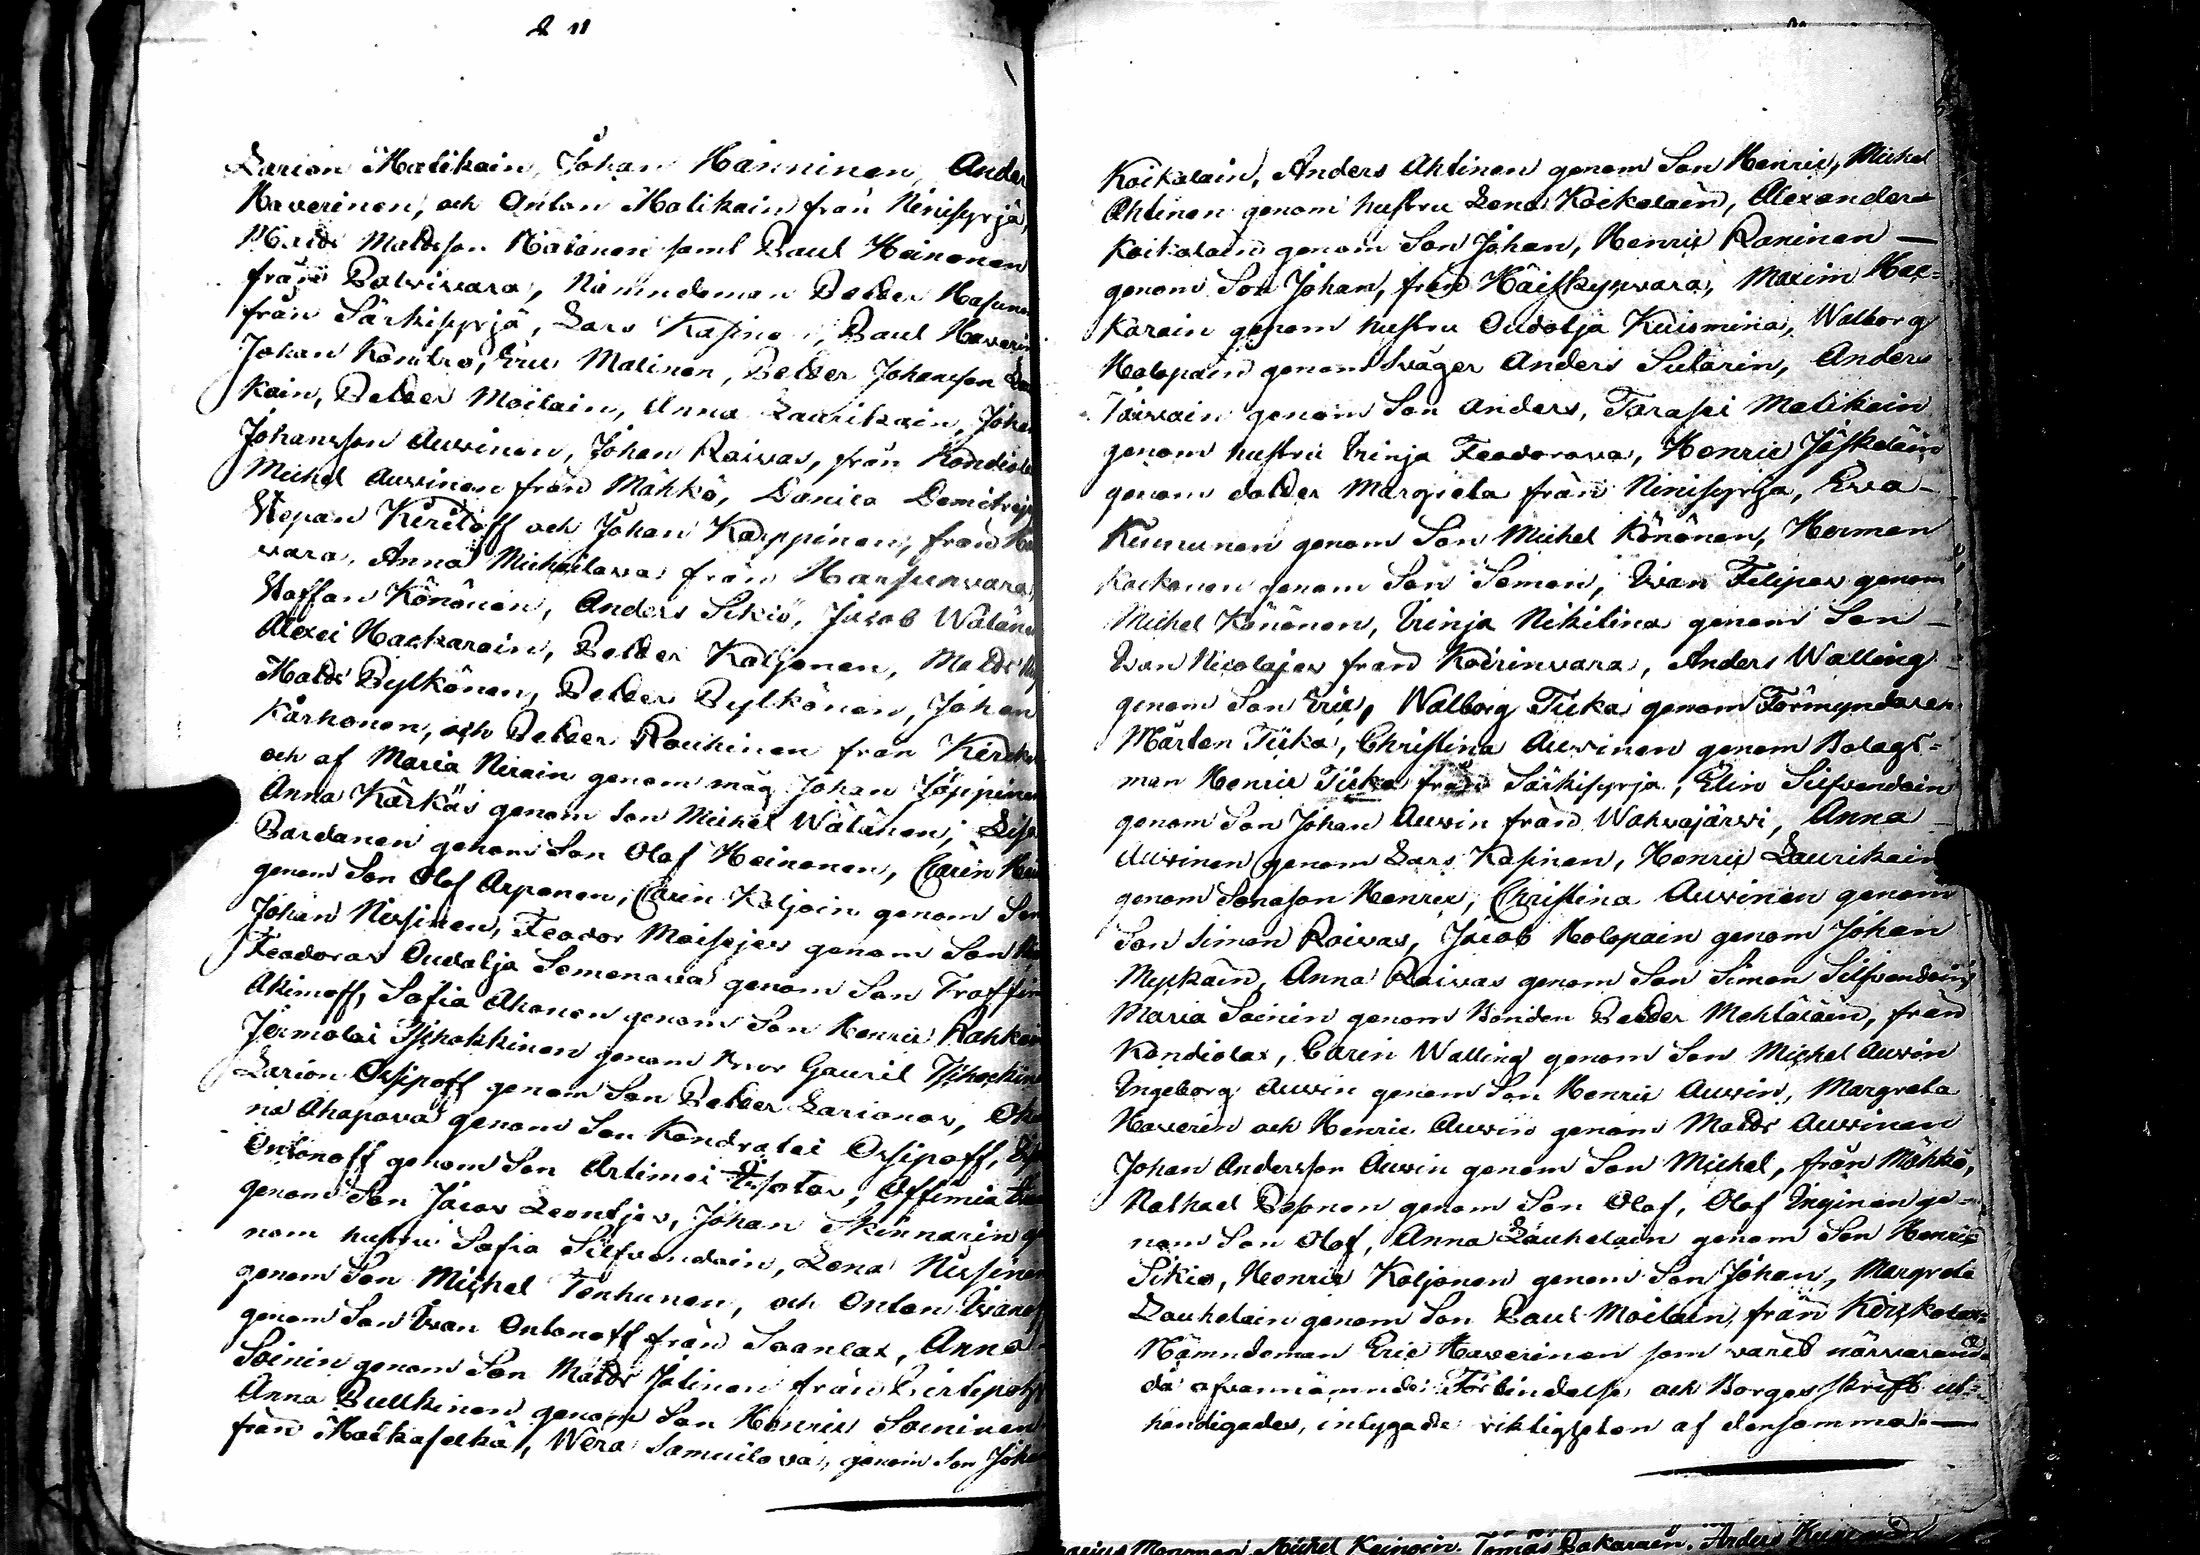 2 11
Larion Matikain, Johan Hänninen, Ander
Haverinen, och Anton Matikain från Ninisyrjä,
Matds Matdsson Hatonen samt Paul Heinonen
från Polvivara, Nämndeman Petter Hasunen
från Särkisyrjä, Lars Kasinen, Paul Haverin
Johan Kontro, Eric Matinen, Petter Johansson
kain, Petter Moilain, Anna Laurikain, Johan
Johansson Auvinen, Johan Raivas, från Kondiola
Michel Auvinen från Möhkö, Danila Demitrije
Stepan Kiriloff och Johan Karppinen, från
vara, Anna Michailowa från Harsunvara
Staffan Könönen, Anders Sikiö, Jacob Wätänen
Alexei Hackarain, Petter Kaljonen, Matds
Matds Pylkönen, Petter Pylkönen, Johan
Kårhonen, och Petter Rouhinen från Kirck
och af Maria Nirain genom måg Johan Töppinen
Anna Kärkäs genom son Michel Wätänen,
Pardanen genom Son Olof Heinonen, Carin
genom Son Olof Arponen, Carin Kaljoin genom Son
Johan Nissinen, Feodor Moisejew genom Son
Feodorow Oudotja Semenowa genom Son Troffim
Akimoff, Sofia Ahonen genom Son Henric Rahkein
Jermolai Tschokkinen genom Bror Gauril Tschockin
Larion Ossipoff genom Son Petter Larionow,
na Ahapowa genom Son Kondratei Ossipoff,
Antonoff genom Son Artimei, Offimia
genom Son Jacow Leontjew, Johan Skinnarin ge
nom hustru Sofia Silfvendain, Lena Nissinen
genom Son Michel Tenhunen, och Anton Ivanoff
genom Son Ivan Antonoff från Saanlax, Anna
Soinin genom Son Matds Jolinen från Pirtipohja
Anna Pulkinen genom Son Henric Soininen
från Hatkaselkä, Wera Samuilowa, genom Son Johan
Koikalain, Anders Ahtinen genom Son Henric, Michel
Ahtinen genom hustru Lena Koikalain, Alexander
Koikalain genom Son Johan, Henric Raninen —
genom Son Johan, från Häiskynvara, Maxim Hac=
karain genom hustru Oudotja Kuismina, Walborg
Holopain genom Svåger Anders Sutarin, Anders
Toivain genom Son Anders, Tarasei Matikain
genom hustru Irinja Feodorowa, Henric Jäskeläin
genom dotter Margreta från Ninisyrja, Eva —
Kinnunen genom Son Michel Könönen, Herman
Kackonen genom Son Semen, Ivan Filipow genom
Michel Könönen, Irinja Nikitina genom Son —
Ivan Nicolajew från Koirinvara, Anders Walling
genom Son Eric, Walborg Tiika genom Förmyndaren
Mårten Tiika, Christina Auvinen genom Bolags=
man Henric Tiika från Särkisyrja, Elin Silfvendain
genom Son Johan Auvin från Wahvajärvi, Anna —
Auvinen genom Lars Kasinen, Henric Laurikain
genom Sonason Henric, Christina Auvinen genom
Son Simon Raivas, Jacob Holopain genom Johan
Muskain, Anna Raivas genom Son Simon Silfvendain,
Maria Soinin genom Bonden Petter Mehtäläin, från
Kondiolax, Carin Walling genom Son Michel Auvin
Ingeborg Auvin genom Son Henric Auvin, Margreta
Haverin och Henric Auvin genom Matds Auvinen
Johan Andersson Auvin genom Son Michel, från Möhkö,
Nathael Pesonen genom Son Olof, Olof Inginen ge=
nom Son Olof, Anna Läuhelain genom Son Henric
Sikiö, Henric Kaljonen genom Son Johan, Margreta
Lauhelain genom Son Paul Moilain, från Kirckolax=
Nämndeman Eric Haverinen som varit närvarande
då ofvannämnde Förbindelse och Borgesskrift ut=
händigades, intygade riktigheten af densamma. —
Monman, Michel Keinoin, Tomas Pakarain, Anders